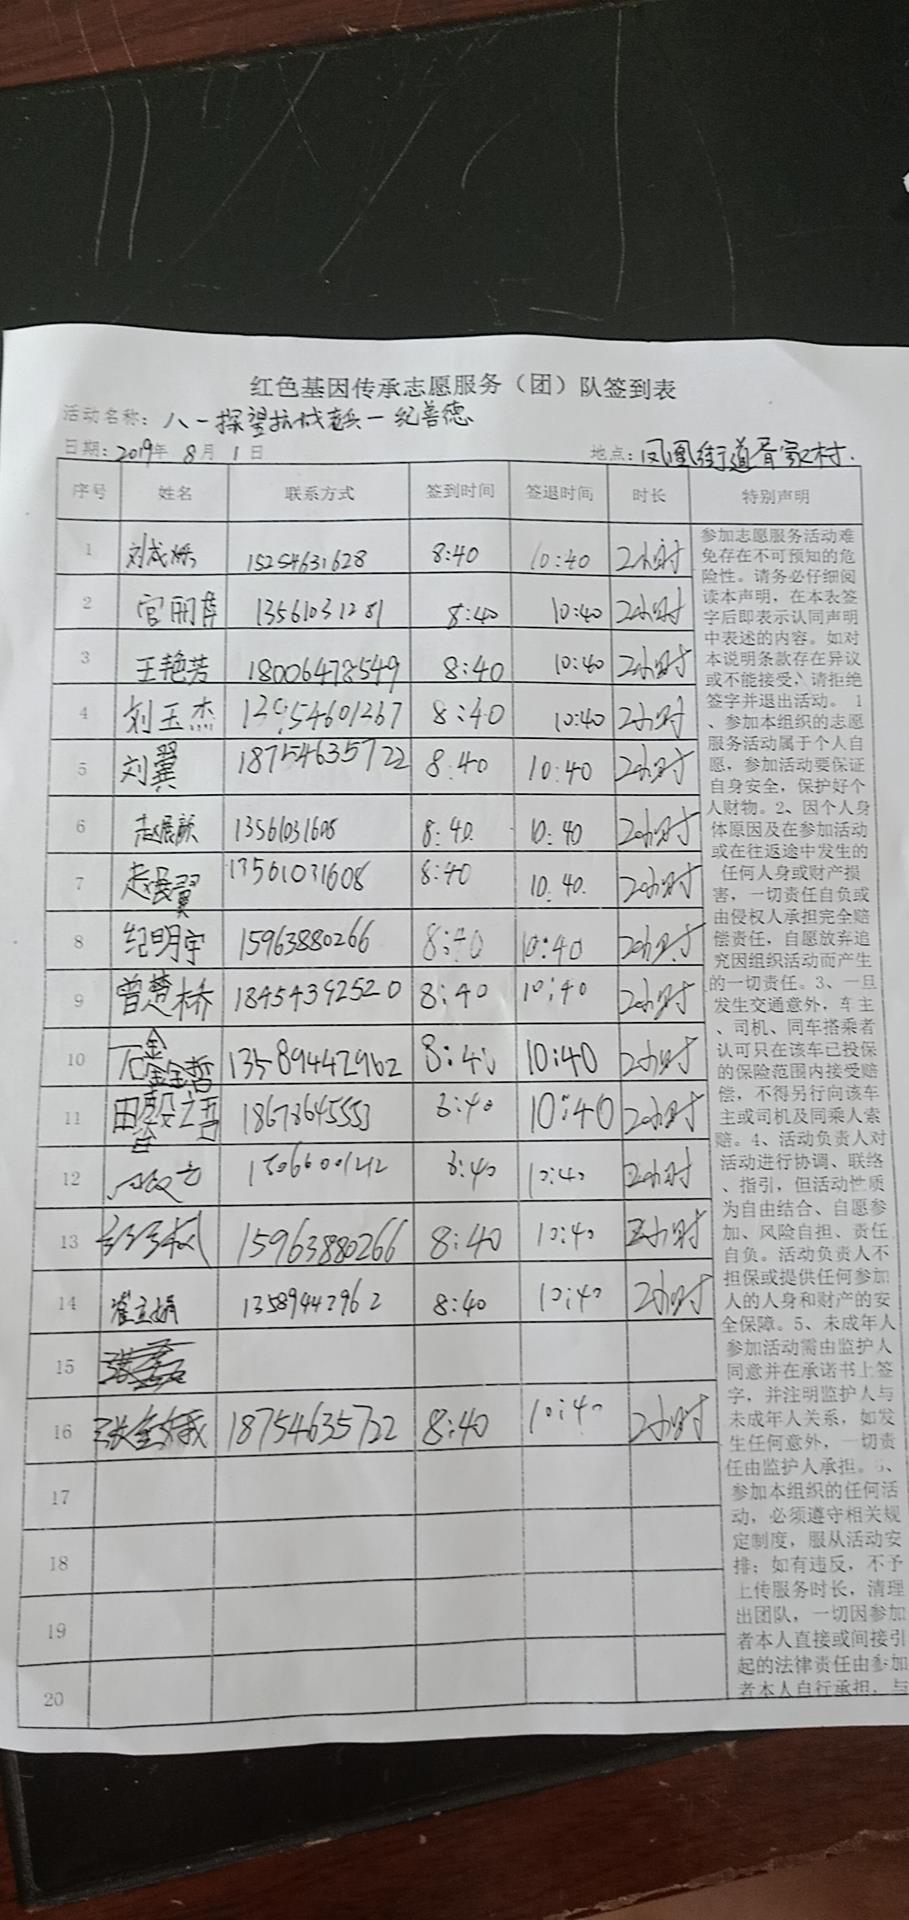 红色基因传承志愿服务（团）队签到表
活动名称：八一探望抗战老兵一纪善德
日期：2019年 8月 1日 地点：凤凰街道胥家村.
序号 姓名 联系方式 签到时间 签退时间 时长 特别声明
1 15254631628 8:40 10:40 2小时
2 13561031281 8:40 10:40 2小时
3 王艳芳 18006478549 8:40 10:40 2小时
4 刘玉杰 8:40 10:40 2小时
5 刘翼 18754635722 8:40 10:40 2小时
6 13561031608 8:40 10:40 2小时
7 赵晨翼 13561031608 8:40 10:40 2小时
8 纪明宇 15963880266 8:40 10:40 2小时
9 曾楚桥 18454392520 8:40 10:40 2小时
10 13589442962 8:40 10:40 2小时
11 18678645553 8:40 10:40 2小时
12 8:40 10:40 2小时
13 15963880266 8:40 10:40 2小时
14 崔立娟 13589442962 8:40 10:40 2小时
15
16 18754635722 8:40 10:40 2小时
17
18
19
20
参加志愿服务活动难
免存在不可预知的危
险性。请务必仔细阅
读本声明，在本表签
字后即表示认同声明
中表述的内容。如对
本说明条款存在异议
或不能接受，请拒绝
签字并退出活动。 1
、参加本组织的志愿
服务活动属于个人自
愿，参加活动要保证
自身安全，保护好个
人财物。2、因个人身
体原因及在参加活动
或在往返途中发生的
任何人身或财产损
害，一切责任自负或
由侵权人承担完全赔
偿责任，自愿放弃追
究因组织活动而产生
的一切责任。3、一旦
发生交通意外，车主
、司机、同车搭乘者
认可只在该车已投保
的保险范围内接受赔
偿，不得另行向该车
主或司机及同乘人索
赔。4、活动负责人对
活动进行协调、联络
、指引，但活动性质
为自由结合、自愿参
加、风险自担、责任
自负。活动负责人不
担保或提供任何参加
人的人身和财产的安
全保障。5、未成年人
参加活动需由监护人
同意并在承诺书上签
字，并注明监护人与
未成年人关系，如发
生任何意外，一切责
任由监护人承担。6、
参加本组织的任何活
动，必须遵守相关规
定制度，服从活动安
排；如有违反，不予
上传服务时长，清理
出团队，一切因参加
者本人直接或间接引
起的法律责任由参加
者本人自行承担，与